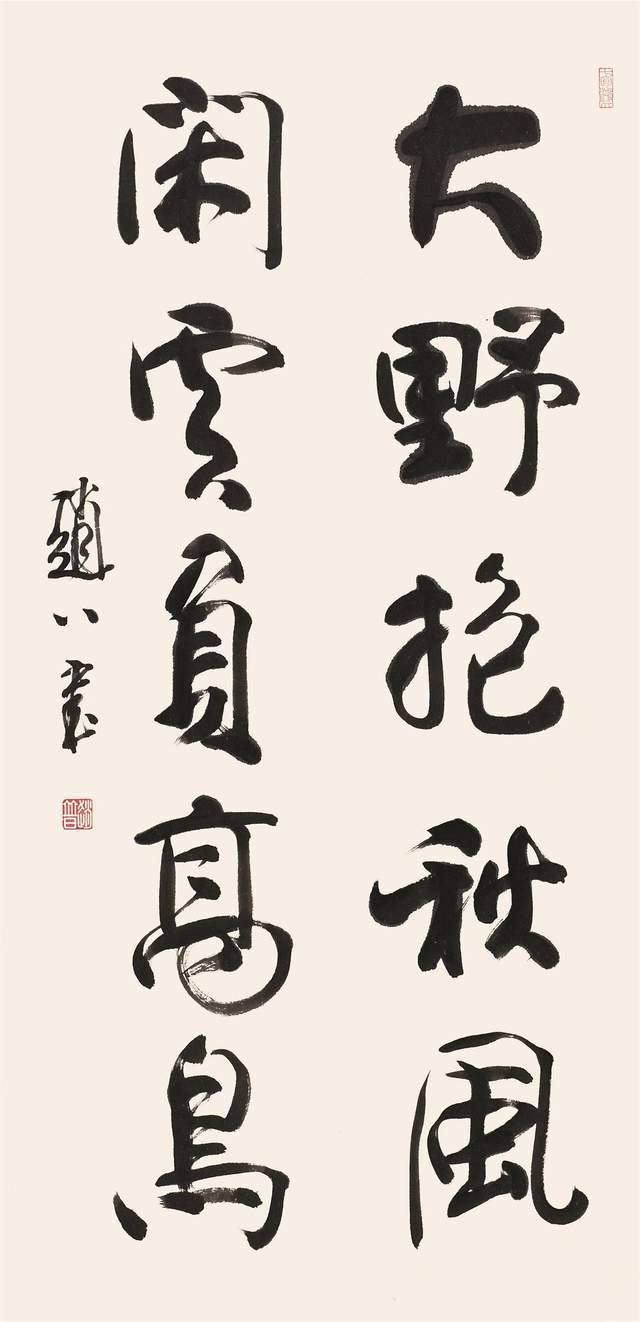 大野抱秋風
閑雲負高鳥
趙
書